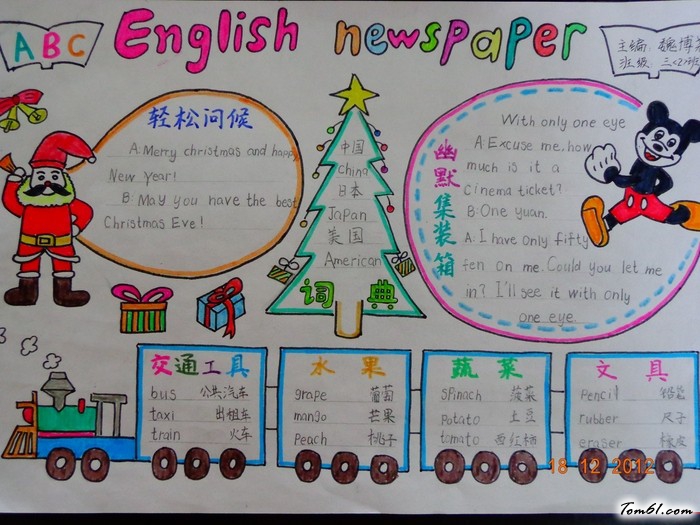 ABC
English newspaper
主编:魏博
班级:三<2>班
轻松问候
A:Merry christmas and happy
New year!
B:May you have the best
Christmas Eve!
中国
china
日本
Japan
美国
American
词典
幽默集装箱
With only one eye
A:Excuse me.how
much is it a
cinema ticket?
B:One yuan.
A.I have only fifty
fen on me.Could you let me
in? I'll see it with only
one eye.
交通工具
bus 公共汽车
taxi 出租车
train 火车
水果
grape 葡萄
mango 芒果
Peach 桃子
蔬菜
spinach 菠菜
Potato 土豆
tomato 西红柿
文具
Pencil 铅笔
rubber 尺子
eraser 橡皮
18 12 2012
Tom61.com